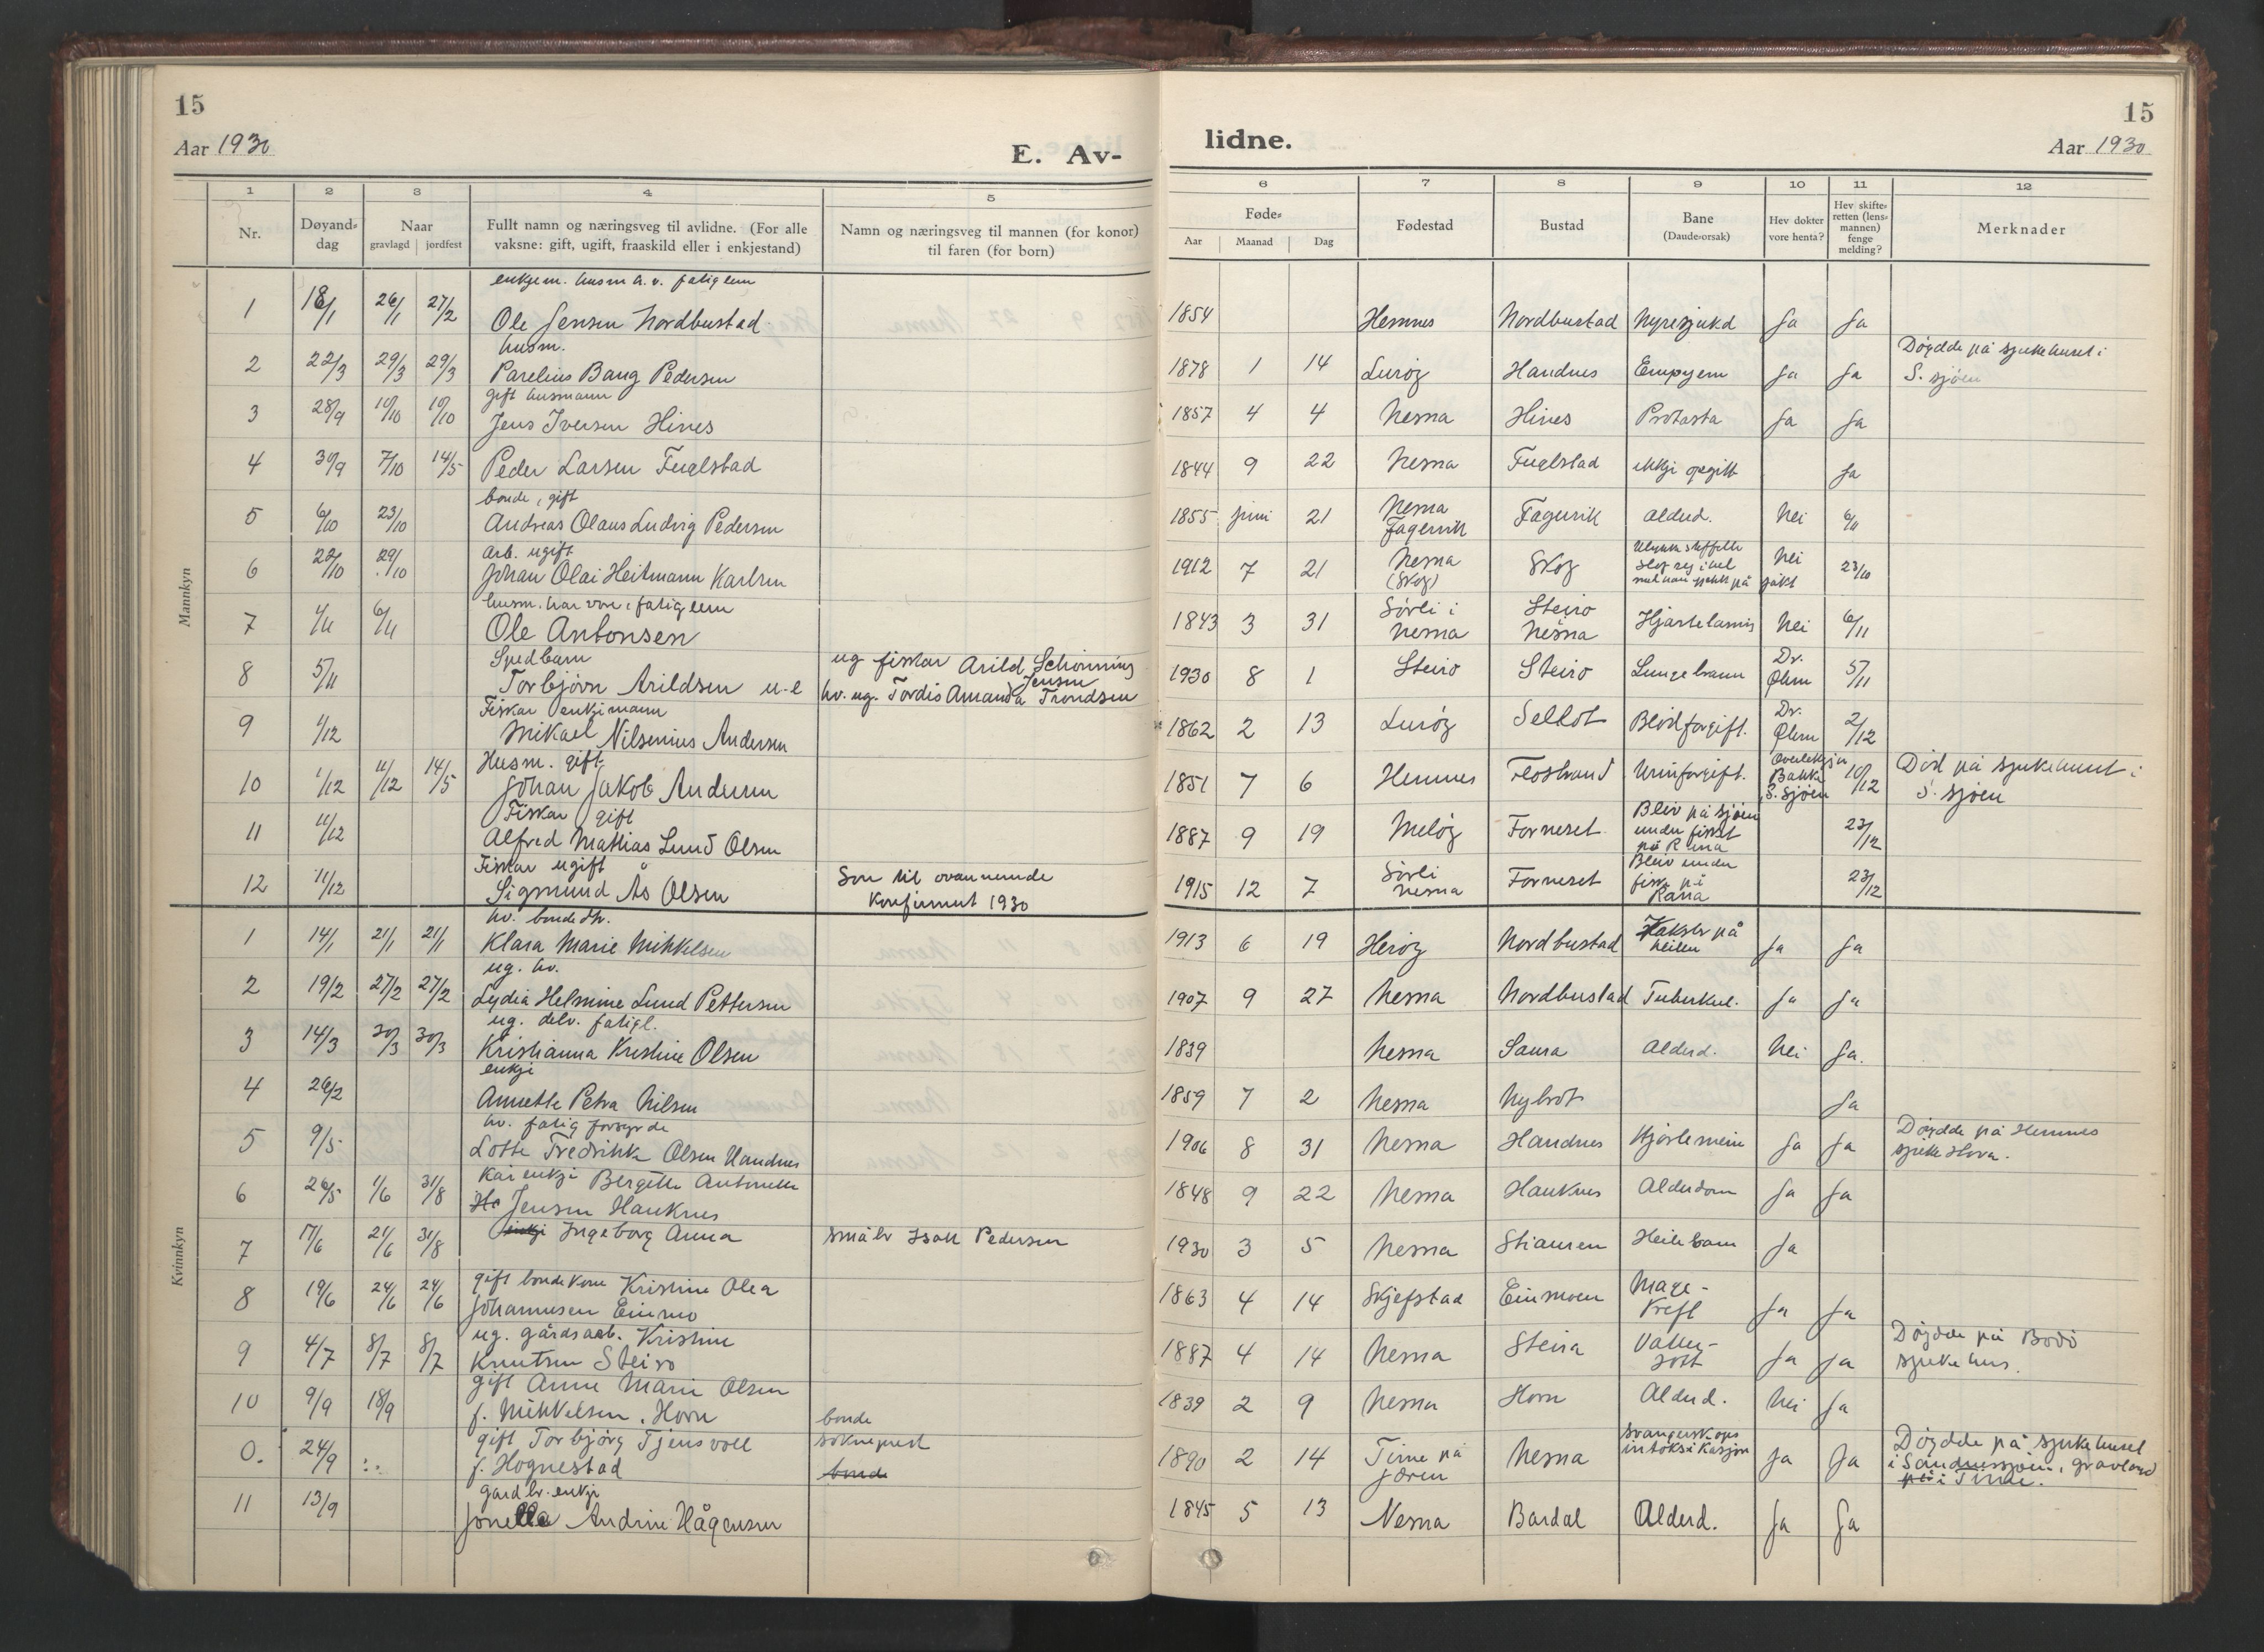 15
Aar 1930
E. Av-
lidne.
15
Aar 1930
1 2 3 4 5 6 7 8 9 10 11 12
Nr.
Døyand-
dag
Naar
gravlagd jordfest
Fullt namn og næringsveg til avlidne. (For alle
vaksne: gift, ugift, fraaskild eller i enkjestand)
Namn og næringsveg til mannen (for konor)
til faren (for born)
Føde-
Aar Maanad Dag
Fødestad
Bustad
Bane
(Daude-orsak)
Hev dokter
vore henta?
Hev skifte-
retten (lens-
mannen)
fenge
melding?
Merknader
Mannkyn
enkjem. husm h. v. fatiglem
1 18/1 26/1 27/2 Ole Jensen Nordbustad 1854 Hemnes Nordbustad Nyresjukd Ja Ja
husm.
2 22/3 29/3 29/3 Parelius Bang Pedersen 1878 1 14 Lurøy Handnes Empyem Ja Ja Døydde på sjukehuset i
S. sjøen
gift husmann
3 28/9 10/10 10/10 Jens Iversen Hines 1857 4 4 Nesna Hines Protasta Ja Ja
4 30/9 7/10 14/5 Peder Larsen Fuglstad 1844 9 22 Nesna Fuglstad ikkji opgitt Ja
bonde, gift
5 6/10 23/10 Andreas Olaus Ludvig Pedersen 1855 juni 21 Nesna
Fagervik Fagervik alderd. Nei 6/11
arb. ugift
6 22/10 29/10 Johan Olai Heitmann Karlsen 1912 7 21 Nesna
(Skog) Skog
slog seg i hel
Nei 23/10
husm. har vore i fatiglem
7 4/11 6/11 Ole Antonsen 1843 3 31 Sørli i
Nesna Steiro
Nesna Hjartelamm Nei 6/11
Spedbarn
8 5/11 Torbjørn Arildsen u-e ug fiskar Arild Schønning
Jensen
hv. ug. Tordis Amanda Trondsen 1930 8 1 Steiro Steiro Lungebrann Dr.
Øhrn 5/11
Fiskar enkjimann
9 1/12 Mikael Nilsenius Andersen 1862 2 13 Lurøy Selbot Blodforgift. Dr.
Øhrn 2/12
Husm. gift
10 1/12 11/12 14/5 Johan Jakob Andersen 1851 7 6 Hemnes Flostrand Urinforgift. Overlækja
Bakke
S. Sjøen 10/12 Død på sjukehuset i
S. sjøen
Fiskar gift
11 11/12 Alfred Mathias Lund Olsen 1887 9 19 Meløy Forneset Blev på sjøen
under fisket
på Rana 23/12
Fiskar ugift
12 11/12 Sigmund Ås Olsen Son til ovannemnde
Konfirmert 1930 1915 12 7 Sørli
Nesna Forneset Bleiv under
fiske på
Rana 23/12
Kvinnkyn
hv. bondedtr.
1 14/1 21/1 21/1 Klara Marie Mikkelsen 1913 6 19 Herøy Nordbustad på
heilen Ja Ja
ug. hv.
2 19/2 27/2 27/2 Lydia Helmine Lund Pettersen 1907 9 27 Nesna Nordbustad Tuberkul. Ja Ja
ug. delv. fatigl.
3 14/3 30/3 30/3 Kristianna Kristine Olsen 1839 Nesna Saura Alderd. Nei Ja.
enkji
4 26/2 Annette Petra Nilsen 1859 7 2 Nesna Nybrot Ja
hv. fatig forsyrde
5 9/5 Lotte Fredrikke Olsen Handnes 1906 8 31 Nesna Handnes Hjartemein Ja Ja Døydde på Hemnes
sjukestova.
Kår enkji Bergitte Antonette
6 26/5 1/6 31/8 Jensen Hauknes 1848 9 22 Nesna Hauknes Alderdom Ja Ja
7 17/6 21/6 31/8 enkji Ingeborg Anna småbr Isak Pedersen 1930 3 5 Nesna Stiauren Ja
gift bondekone Kristine Olea
8 19/6 24/6 24/6 Johannesen Einmo 1863 4 14 Skjefstad Einmoen Mage-
kreft Ja Ja
ug. gårdsarb. Kristine
9 4/7 8/7 8/7 Knutsen Steiro 1887 4 14 Nesna Steira Vatter-
sott Ja Ja Døydde på Bodø
sjukehus.
gift Anne Marie Olsen
10 9/9 18/9 f. Mikkelsen. Horn bonde 1839 2 9 Nesna Horn Alderd. Nei Ja
gift Torbjørg Tjensvoll sokneprest
0. 24/9 f. Hognestad bonde 1890 2 14 Time på
Jæren Nesna Svangerskaps
intoksikasjon Ja Ja Døydde på sjukehuset
i Sandnessjøen, gravlagd
på i Time.
gardbr. enkji
11 13/9 Jonella Andrine Hågensen 1845 5 13 Nesna Bardal Alderd. Ja Ja